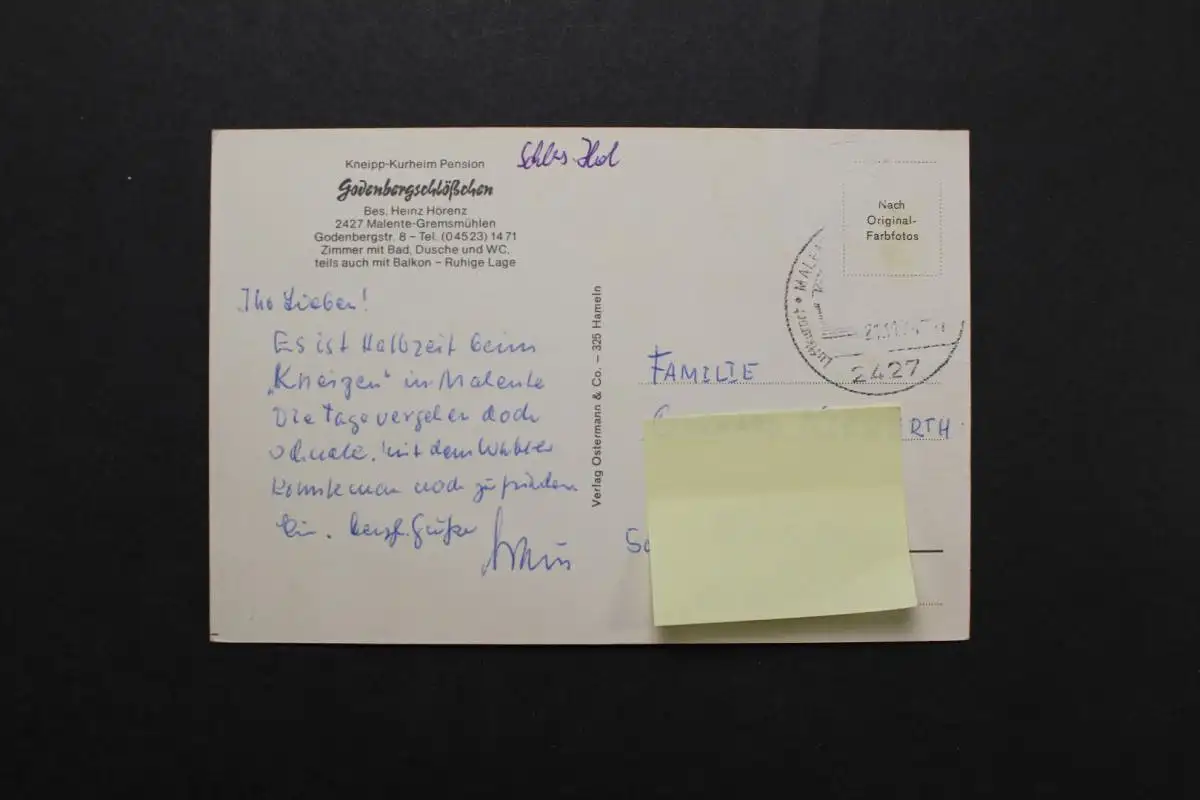 Kneipp-Kurheim Pension
Godenbergschlößchen
Bes. Heinz Hörenz
2427 Malente-Gremsmühlen
Godenbergstr. 8 – Tel. (0 45 23) 14 71
Zimmer mit Bad, Dusche und WC,
teils auch mit Balkon – Ruhige Lage
Schles. Hol
Ihr Lieben!
Es ist Halbzeit beim
„Kneipen" in Malente
Die Tage vergehen doch
schnell. Mit dem Wetter
konnte man noch zufrieden
sein. Herzl. Grüße
Verlag Ostermann & Co. – 325 Hameln
Nach
Original-
Farbfotos
Luftkurort • MALEN
2427
FAMILIE
RTH